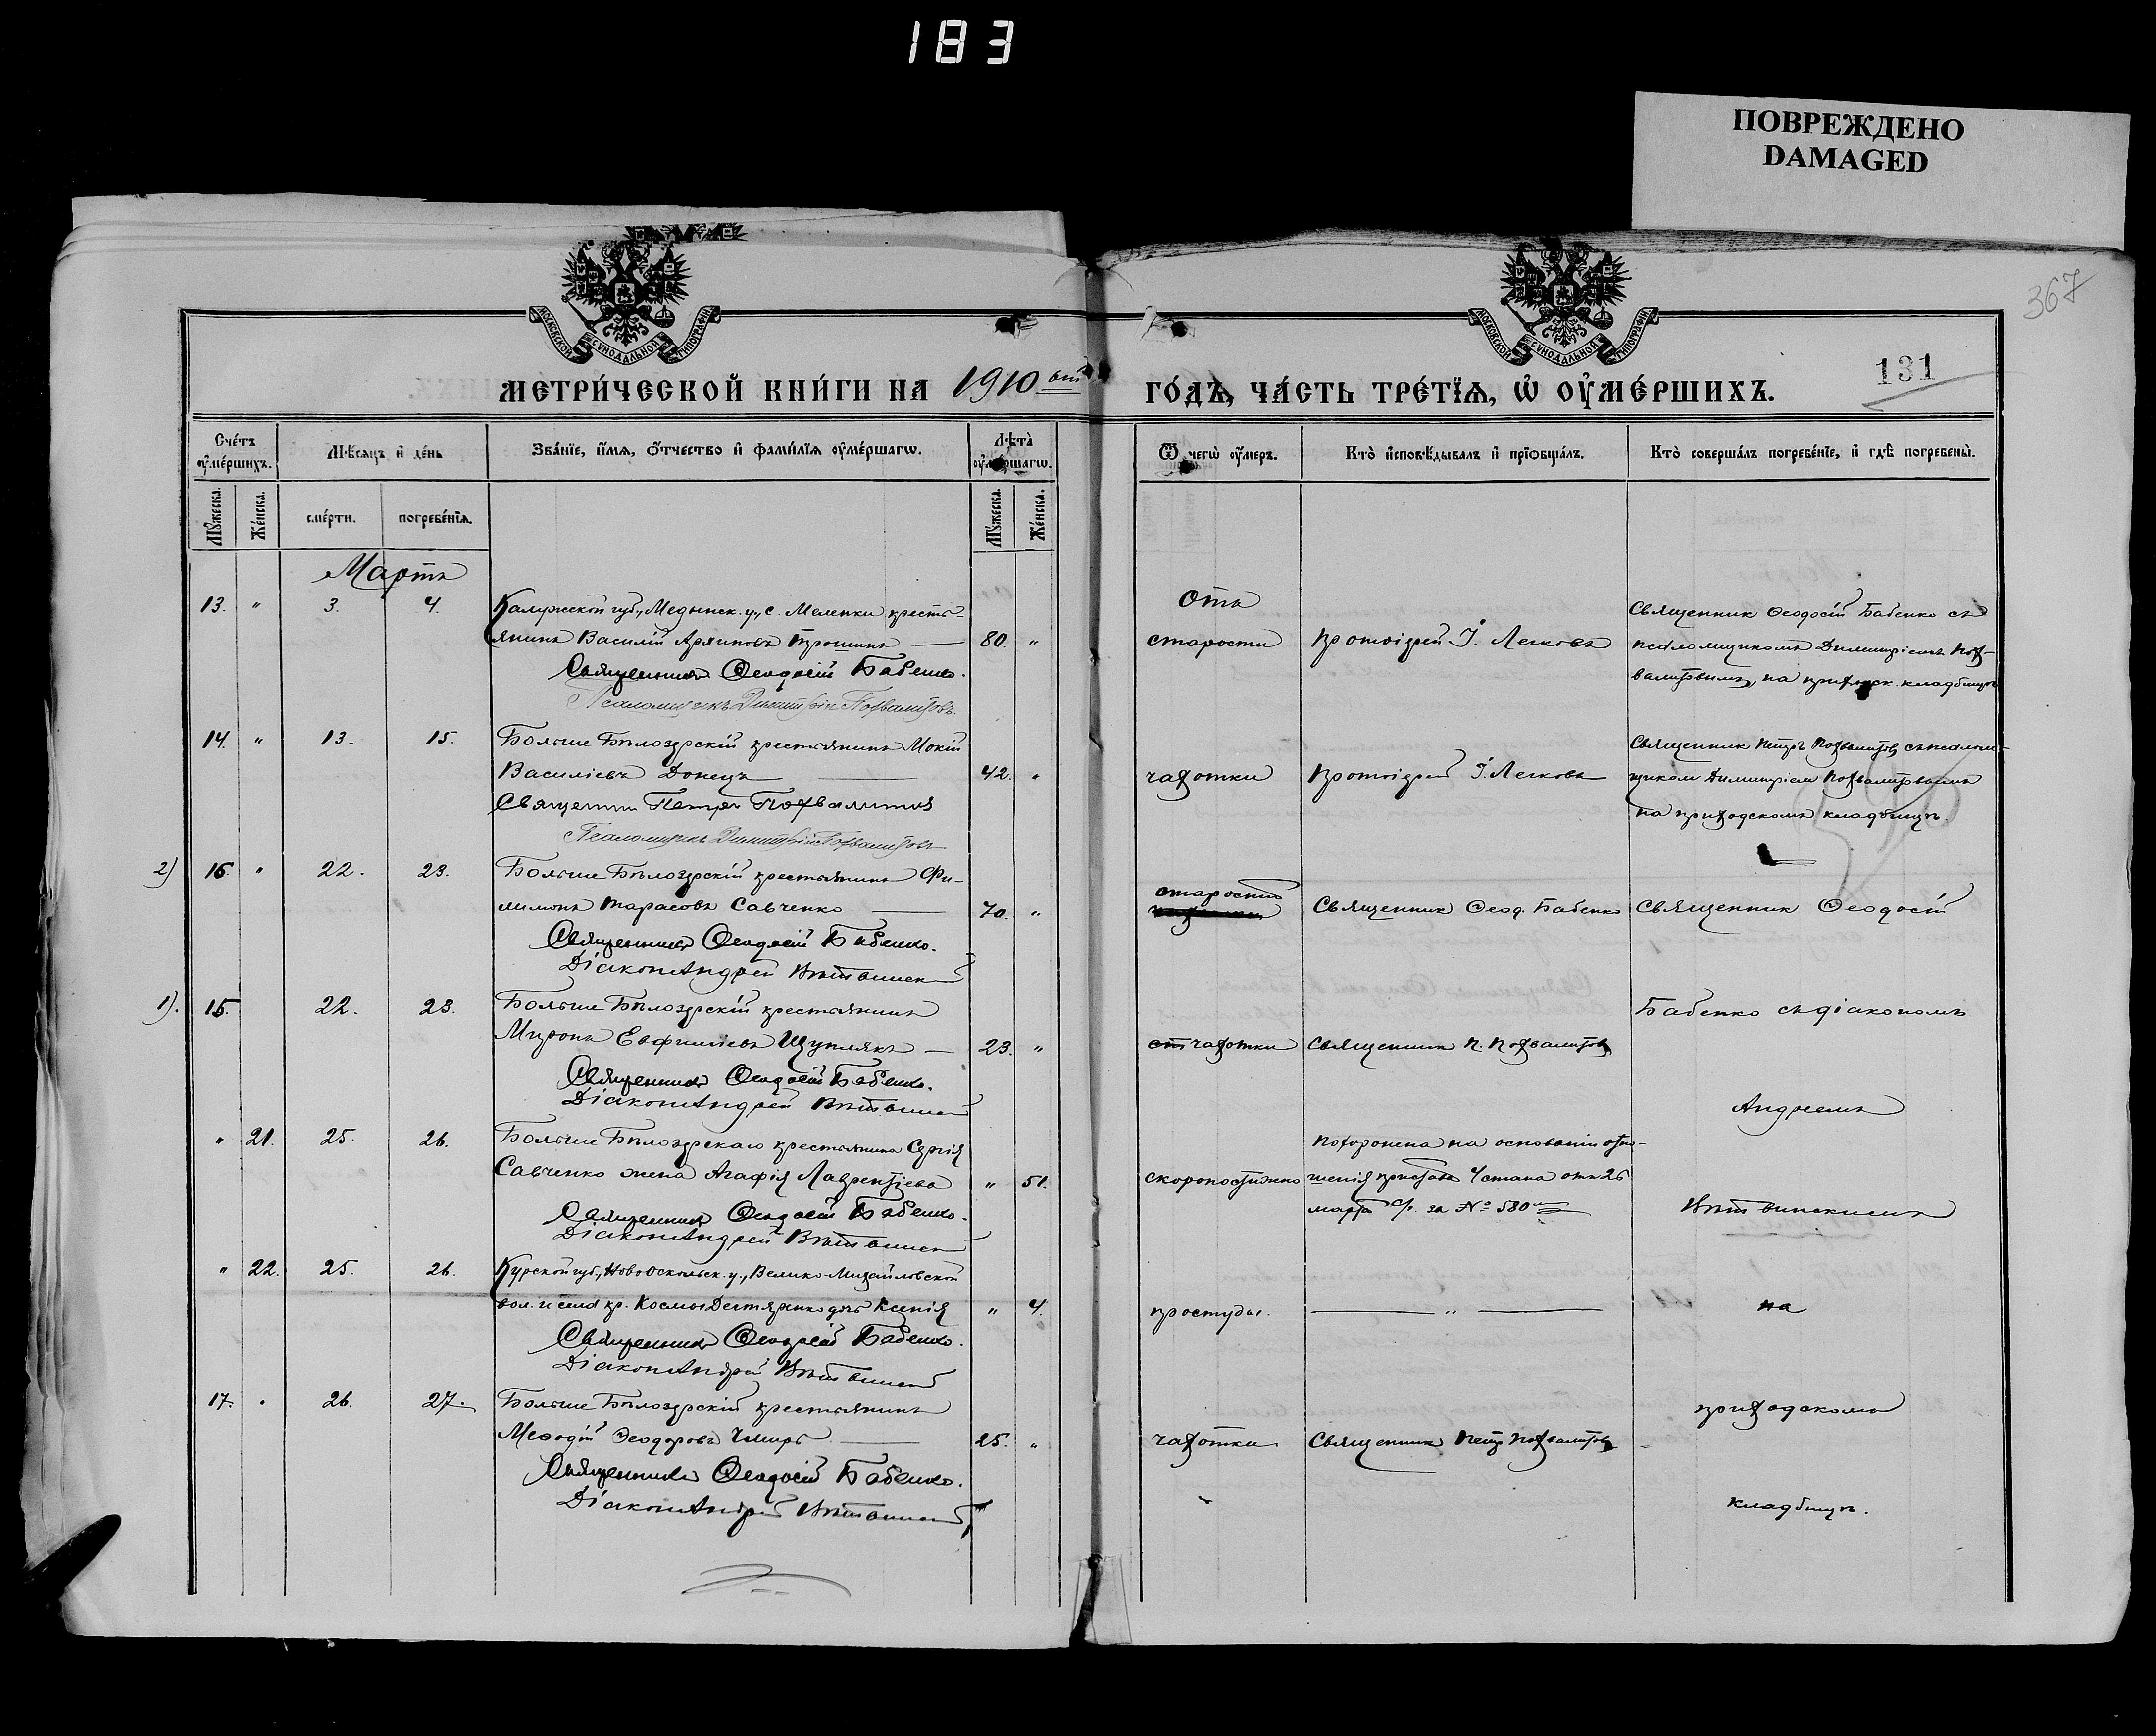 183
ПОВРЕЖДЕНО
DAMAGED
367
131
МОСКОВСКОЙ СѴНОДАЛЬНОЙ ТИПОГРАФІИ
МОСКОВСКОЙ СѴНОДАЛЬНОЙ ТИПОГРАФІИ
МЕТРИ́ЧЕСКОЙ КНИ́ГИ НА 1910 ый ГО́ДЪ, ЧА́СТЬ ТРЕ́ТЇѦ, Ѡ҆ ОУ҆МЕ́РШИХЪ.
Сче́тъ оу҆ме́ршихъ.
Мѣ́сѧцъ и҆ де́нь
Зва́нїе, и҆́мѧ, ѻ҆́тчество и҆ фами́лїѧ оу҆ме́ршагѡ.
Лѣ́та̀ оу҆ме́ршагѡ.
Ѿ чегѡ̀ оу҆́меръ.
Кто̀ и҆сповѣ́дывалъ и҆ прїѡбща́лъ.
Кто̀ соверша́лъ погребе́нїе, и҆ гдѣ̀ погребены̀.
Мꙋ́жеска.
Же́нска.
сме́рти.
погребе́нїѧ.
Мꙋ́жеска.
Же́нска.
Мартъ
13. " 3. 4. Калужской губ., Медынск. у., с. Маленки кресть-
янинъ Василій Трошинъ 80. "
Священникъ Ѳеодосій Бабенко.
Псаломщикъ Димитрій Похвалитовъ.
Отъ старости
Протоіерей І. Легковъ
Священникъ Ѳеодосій Бабенко съ
псаломщикомъ Димитріемъ Пох-
валитовымъ, на приходск. кладбищѣ
14. " 13. 15. Больше Бѣлозерскій крестьянинъ Мокій
Василіевъ Донецъ 42. "
Священникъ Петръ Похвалитовъ
Псаломщикъ Димитрій Похвалитовъ
чахотки
Протоіерей І. Легковъ
Священникъ Петръ Похвалитовъ съ псалом-
щиком Димитріем Похвалитовымъ
на приходскомъ кладбищѣ.
2) 16. " 22. 23. Больше Бѣлозерскій крестьянинъ Фи-
лимонъ Тарасовъ Савченко 70. "
Священникъ Ѳеодосій Бабенко.
Діаконъ Андрей Витвинскій
старости
Священник Ѳеод. Бабенко
Священник Ѳеодосій
1). 15. 22. 23. Больше Бѣлозерскій крестьянинъ
Миронъ Евфиміевъ Щуплякъ 23. "
Священникъ Ѳеодосій Бабенко.
Діаконъ Андрей Витвинскій
от чахотки
Священник П. Похвалитовъ
Бабенко съ діакономъ
Андреемъ
" 21. 25. 26. Больше Бѣлозерскаго крестьянина Сергія
Савченко жена Агафія Лаврентіева " 51.
Священникъ Ѳеодосій Бабенко.
Діаконъ Андрей Витвинскій
скоропостижно
Похоронена на основаніи отно-
шенія пристава 4 стана отъ 26
марта с/г. за № 580
Витвинскимъ
" 22. 25. 26. Курской губ., Ново Оскольск. у., Велико-Михайловской
вол. и села кр. Космы Дегтяренко дочь Ксенія " 4.
Священникъ Ѳеодосій Бабенко.
Діаконъ Андрей Витвинскій
простуды.
"
на
17. " 26. 27. Больше Бѣлозерскій крестьянинъ
Меѳодій Ѳеодоровъ Чмиръ 25. "
Священникъ Ѳеодосій Бабенко.
Діаконъ Андрей Витвинскій
чахотки
Священник Петръ Похвалитовъ
приходскомъ
кладбищѣ.